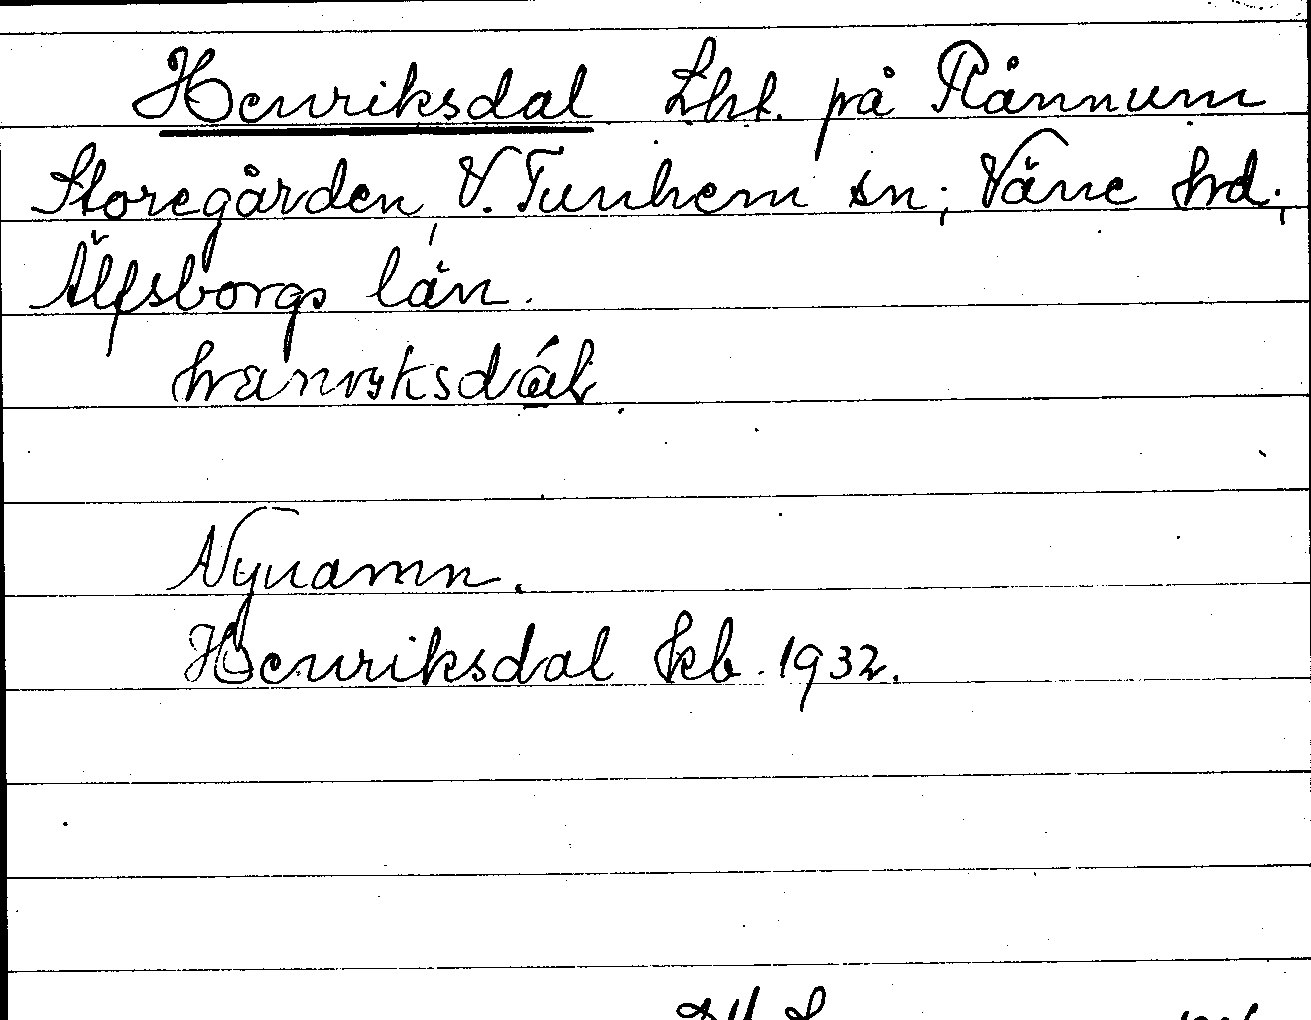 Henriksdal Lht. på Rånnum
Storegården, V. Tunhem sn; Väne hd;
Älfsborgs län.
Nynamn.
Henriksdal kb. 1932.